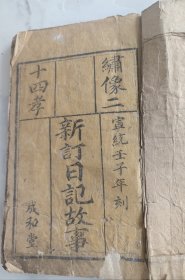 繡像二
十四孝
宣統壬子年刻
新訂日記故事
成和堂